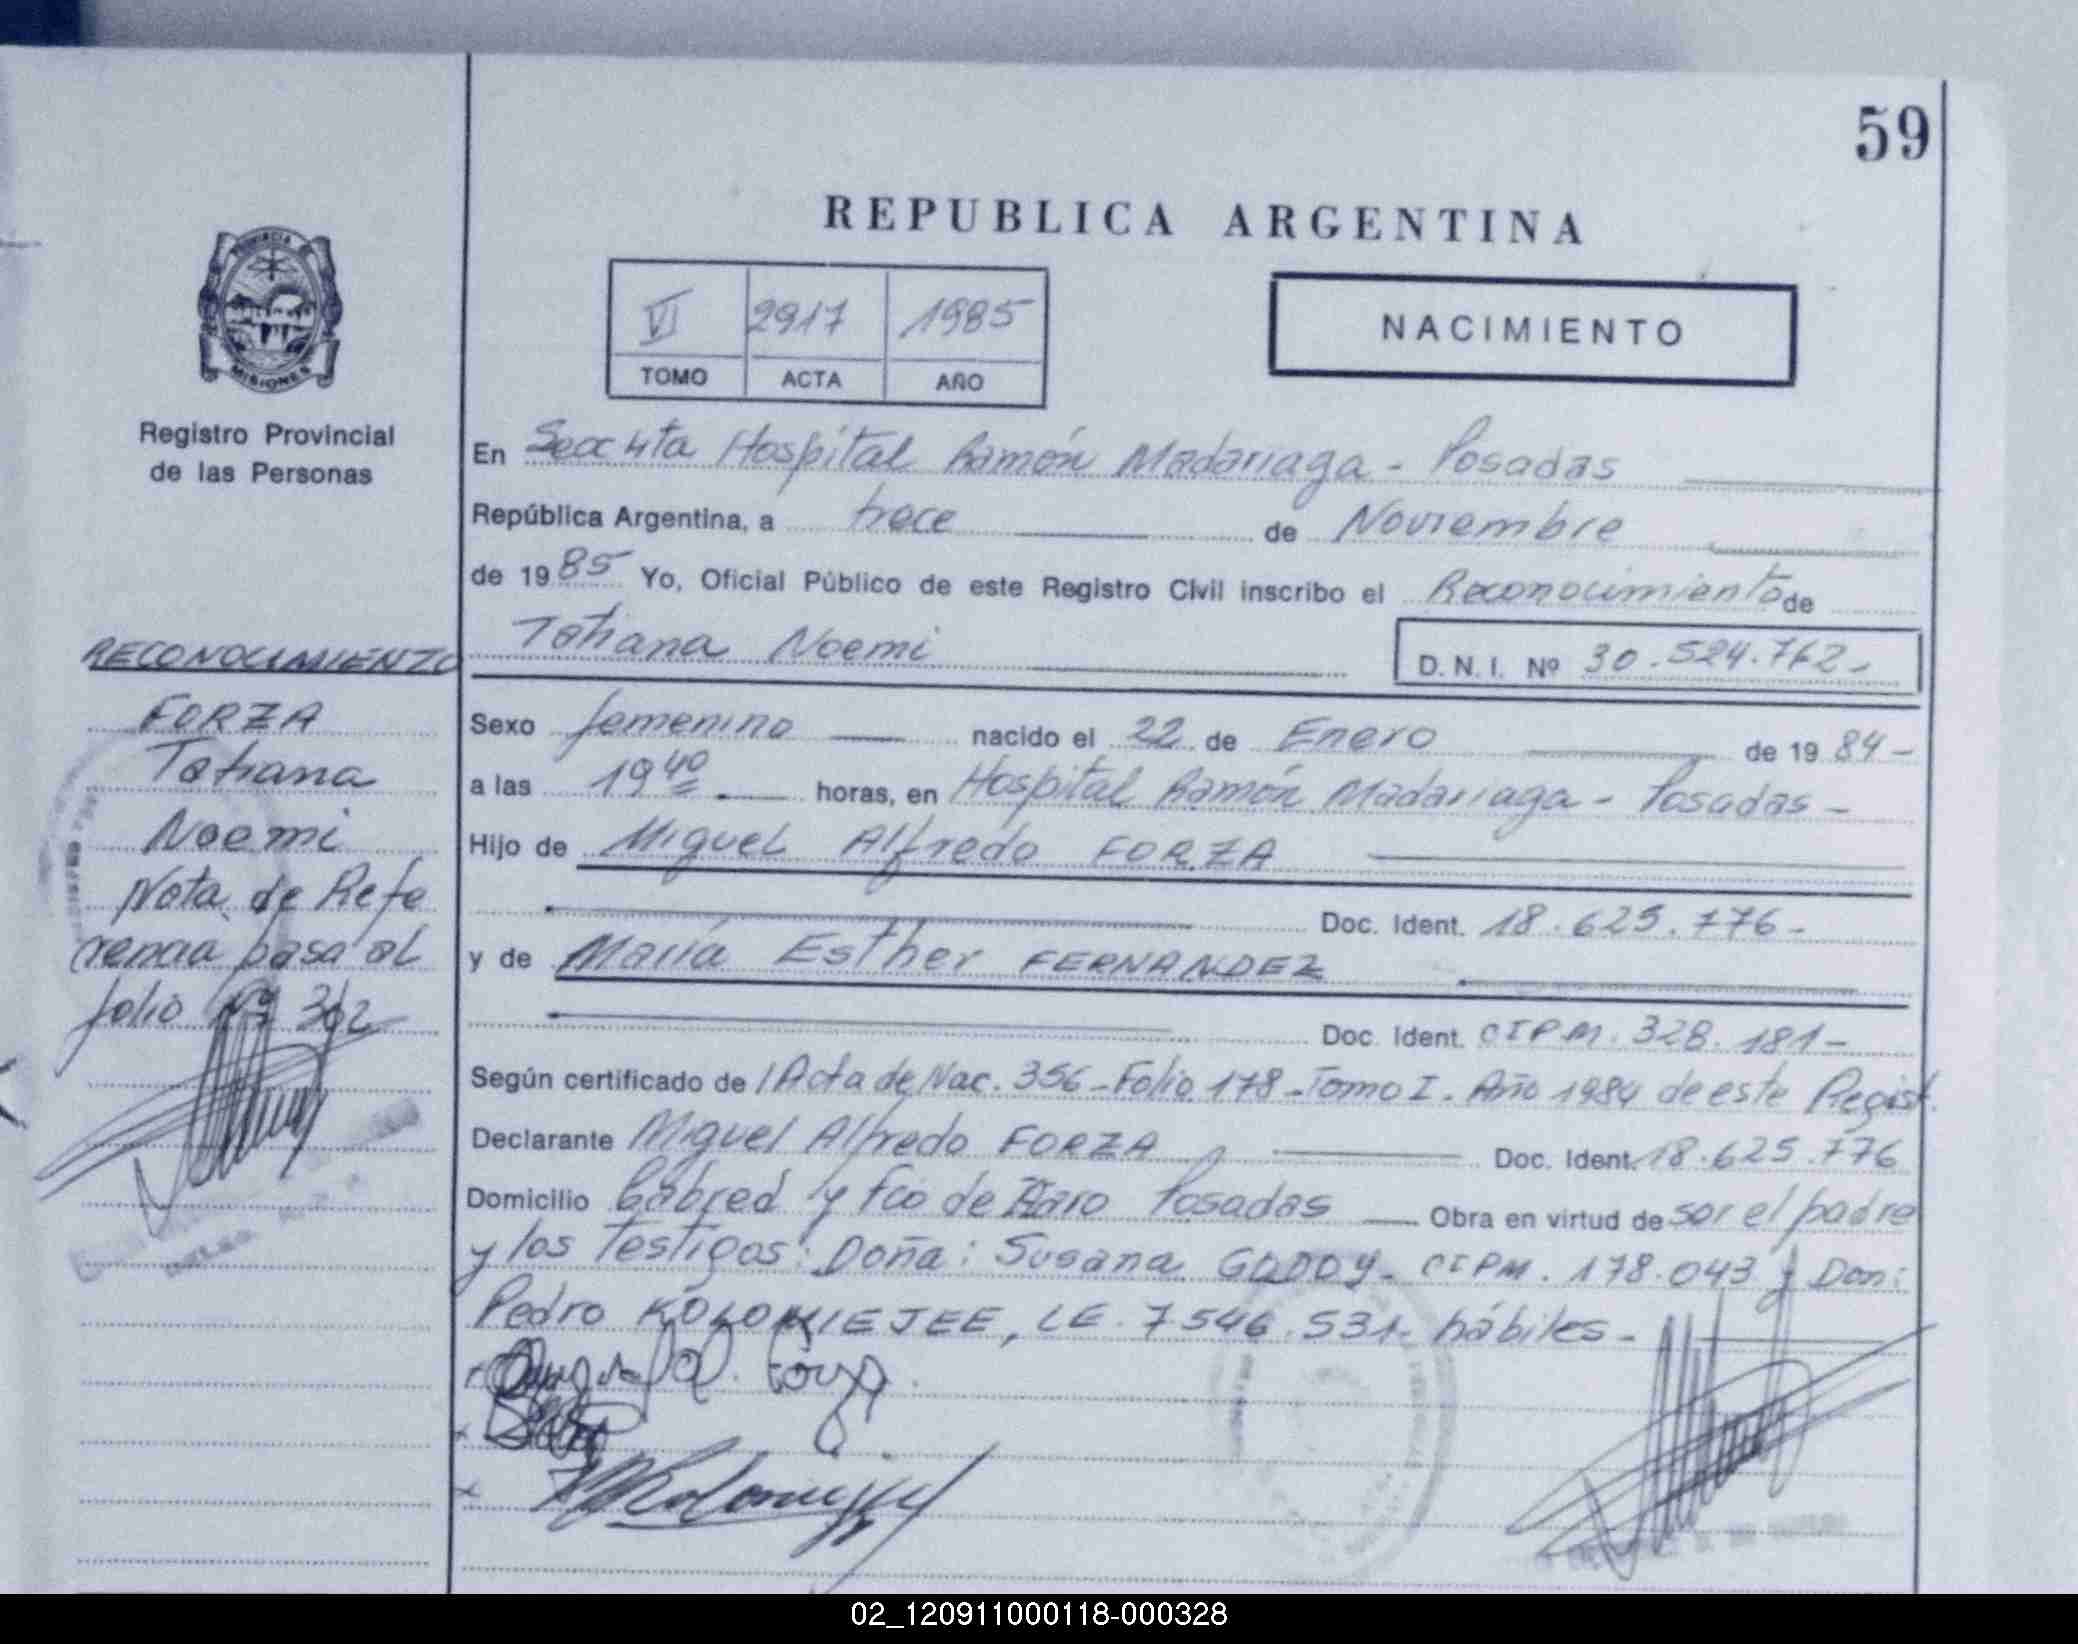 59
REPUBLICA ARGENTINA
VI 2917 1985
TOMO ACTA AÑO
NACIMIENTO
PROVINCIA
MISIONES
Registro Provincial
de las Personas
RECONOCIMIENTO
FORZA
Tatiana
Noemi
Nota de Refe
rencia pasa al
folio Nº 362
En Secc 4ta Hospital Ramón Madariaga - Posadas
República Argentina, a trece de Noviembre
de 1985 Yo, Oficial Público de este Registro Civil inscribo el Reconocimiento de
Tatiana Noemi D.N.I. Nº 30.524.762.-
Sexo femenino nacido el 22 de Enero de 1984-
a las 19 40 horas, en Hospital Ramón Madariaga - Posadas -
Hijo de Miguel Alfredo FORZA
Doc. Ident. 18.625.776-
y de María Esther FERNANDEZ
Doc. Ident. CIPM. 328.181-
Según certificado de Acta de Nac. 356 - Folio 178 - Tomo I. Año 1984 de este Regist.
Declarante Miguel Alfredo FORZA Doc. Ident. 18.625.776
Domicilio Cabred y Fco de Haro Posadas Obra en virtud de ser el padre
y los testigos: Doña: Susana GODOY - CIPM. 178.043 y Don:
Pedro KOLOMIEJEE, LE. 7546.531- hábiles -
02_120911000118-000328